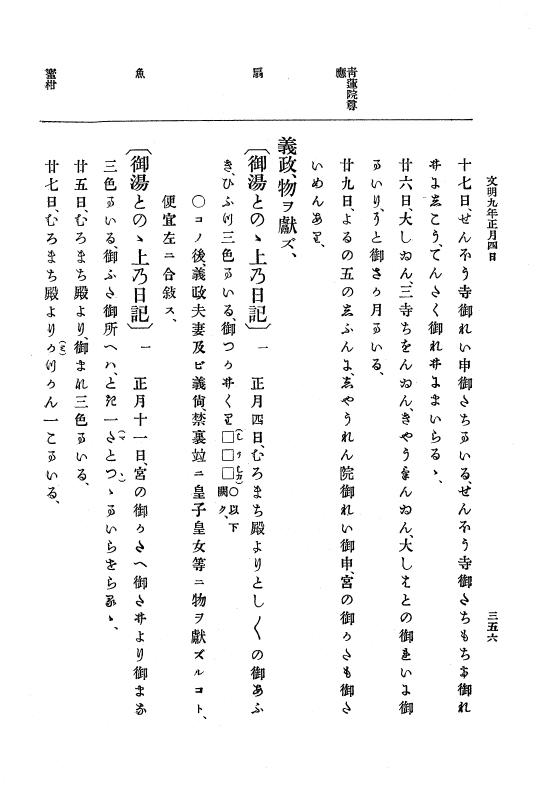 文明九年正月四日
三五六
十七日、せんそう寺御れい申御さちまいる、せんそう寺御さちもちて御れ
井よゑこう、てんさく御れ井よまいらるゝ、
廿六日、大しゐん、三寺ちをんゐん、きやうゐんゐん、大しもとの御れいよ御
まいり、うと御さか月まいる、
廿九日、よるの五のゑふんよ、ゑやうれん院御れい御申、宮の御かさも御さ
いめんあり、
青蓮院尊應
義政、物ヲ獻ズ、
扇
〔御湯とのゝ上乃日記〕一 正月四日、むろまち殿よりとし〱の御あふ
き、ひふり三色まいる、御つか井くり□□□○以下闕ク、
○コノ後、義政夫妻及ビ義尙、禁裏竝ニ皇子皇女等ニ物ヲ獻ズルコト、
便宜左ニ合敍ス、
魚
〔御湯とのゝ上乃日記〕一 正月十一日、宮の御かさへ御さ井より御まな
三色まいる、御ふさ御所へハ、とね一さとつゝまいらさらるゝ、
廿五日、むろまち殿より、御まれ三色まいる、
蜜柑
廿七日、むろまち殿よりかりかん一こまいる、